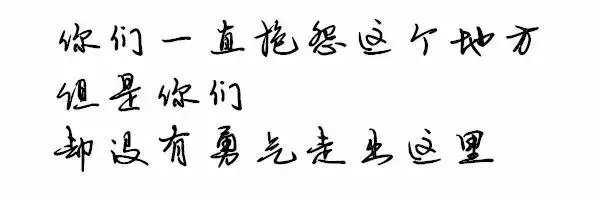 你们一直抱怨这个地方
但是你们
却没有勇气走出这里